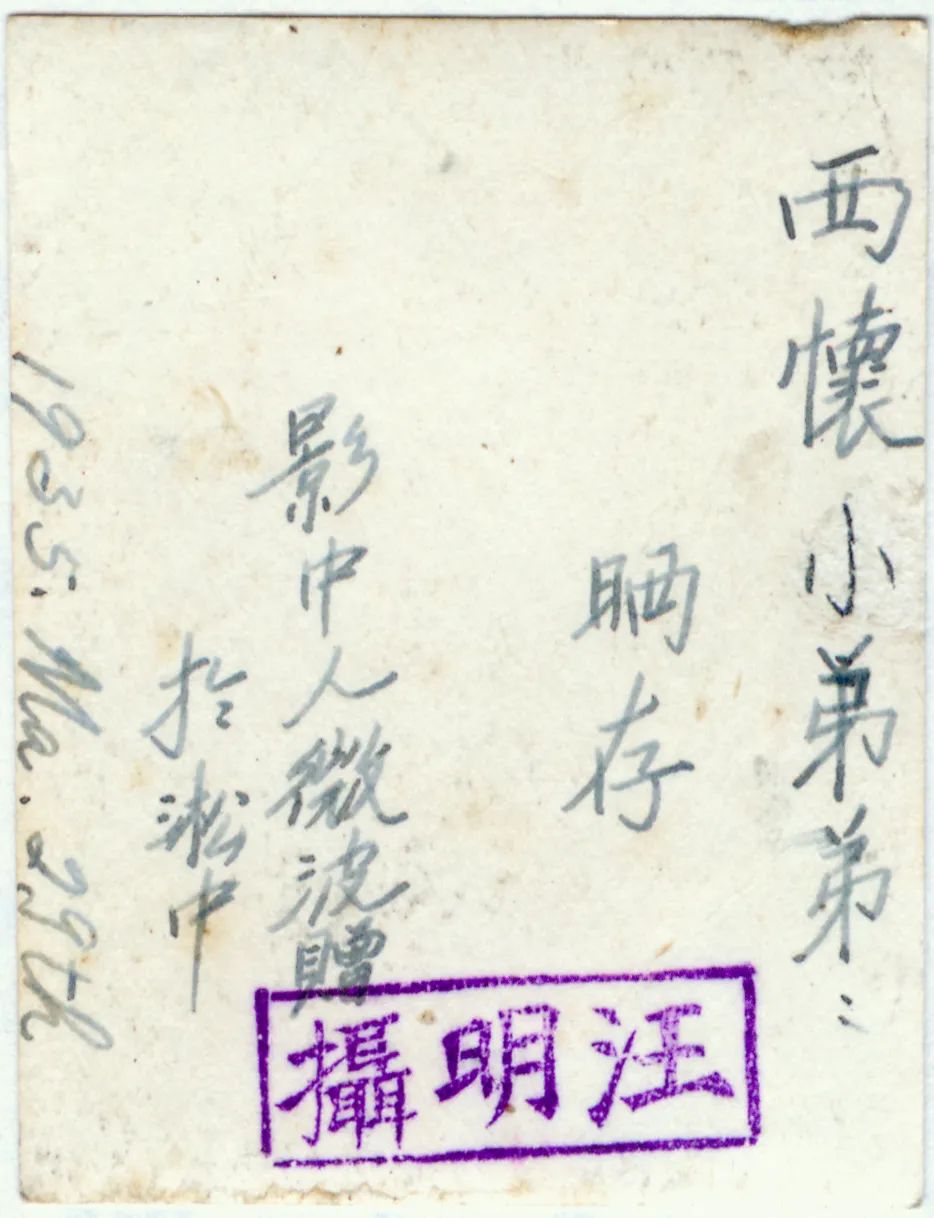 西懷小弟弟：
晒存
影中人微波贈
於淞中
1935. Ma. 29th
汪明攝